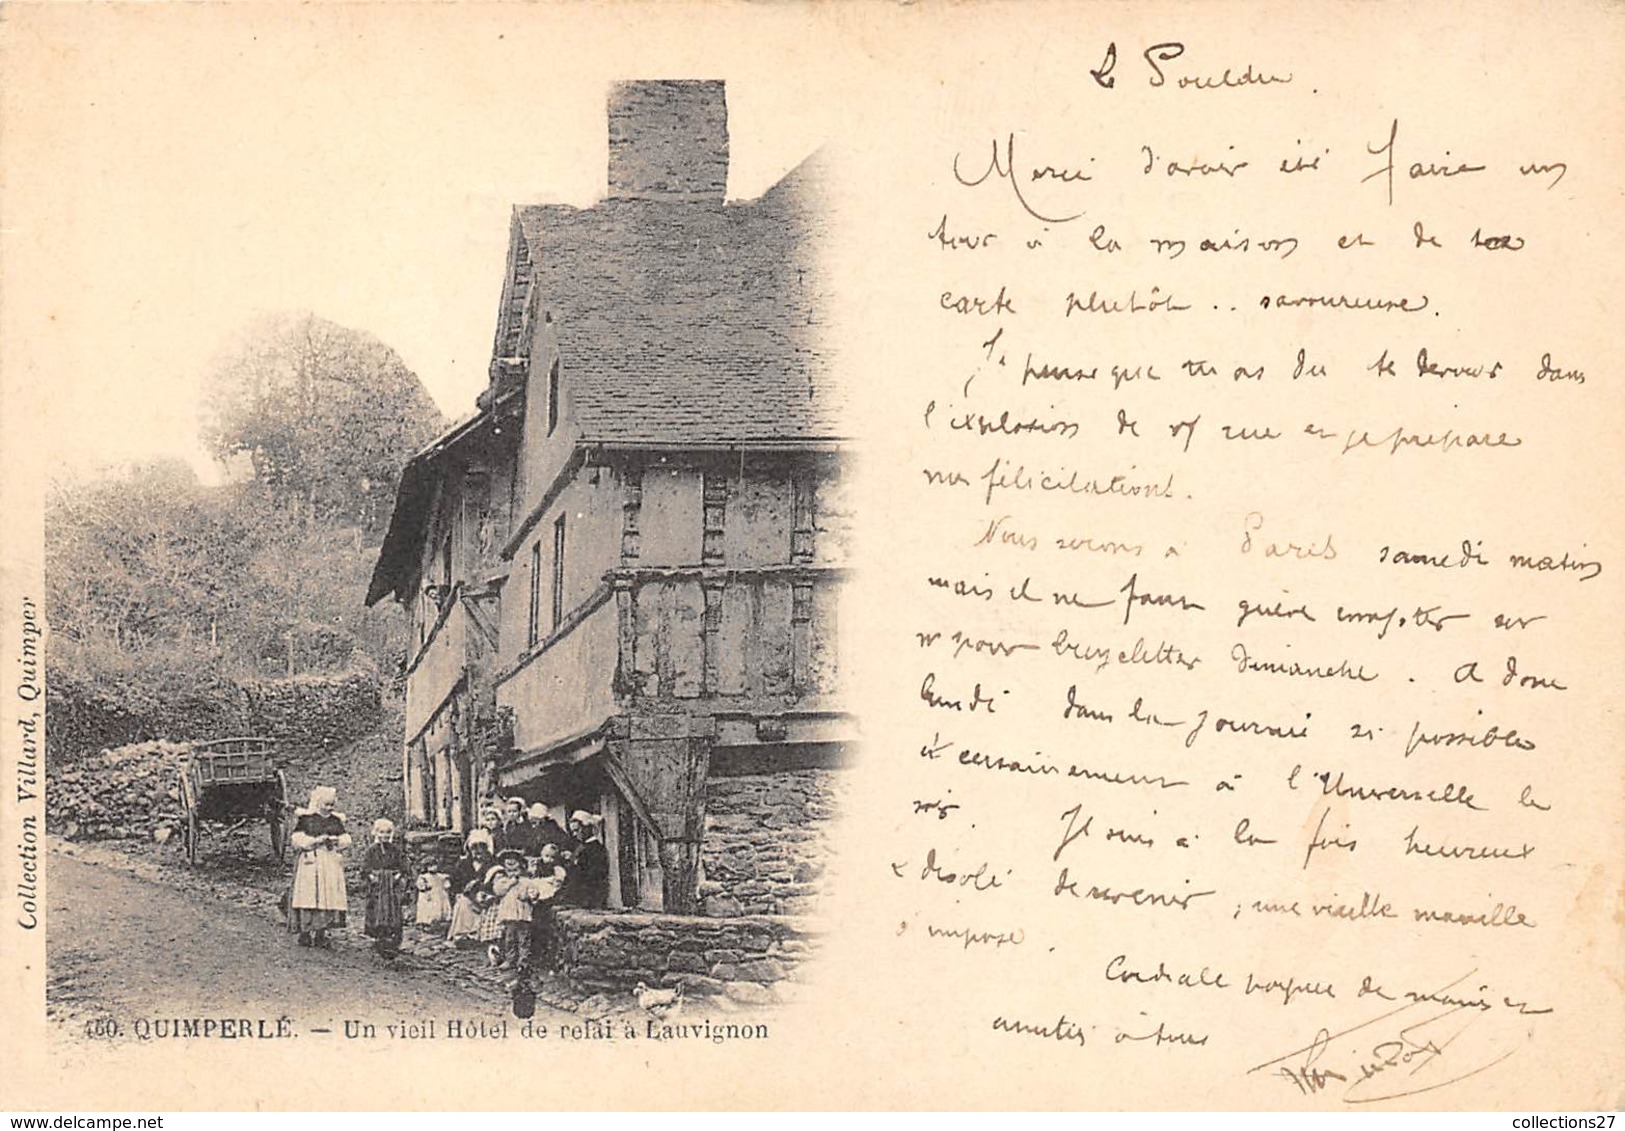 Le Pouldu.
Merci d'avoir été faire un
tour à la maison et de ta
carte plutôt .. savoureuse.
Je pense que tu as du te dans
l'explosion de rue et je prépare
mes félicitations.
Nous serons à Paris samedi matin
mais il ne faut guère compter sur
n/ pour bicycletter dimanche. A donc
lundi dans la journée si possible
et certainement à l'Universelle le
soir. Je suis à la fois heureux
& désolé de revenir, une vieille
s'impose.
Cordiale poignée de mains et
amitiés à tous
460. QUIMPERLÉ. — Un vieil Hôtel de relai à Lauvignon
Collection Villard, Quimper
collections27